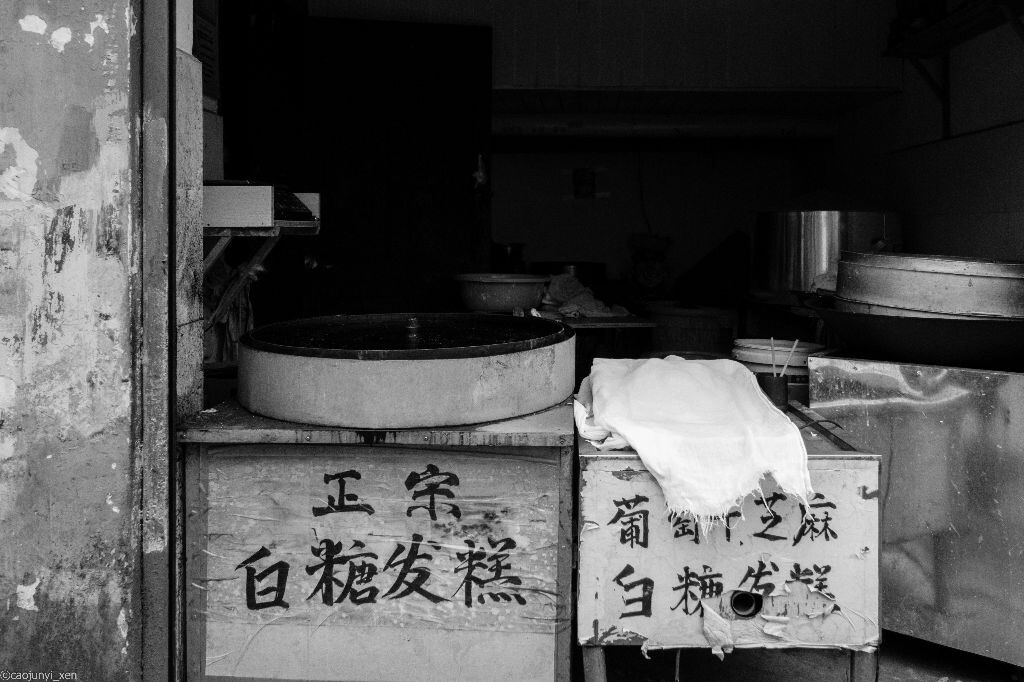 正宗
白糖发糕
葡萄干芝麻
白糖发糕
©caojunyi_xen